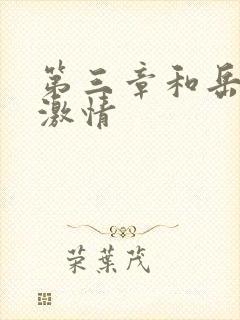 第三章和岳
激情
荣葉茂